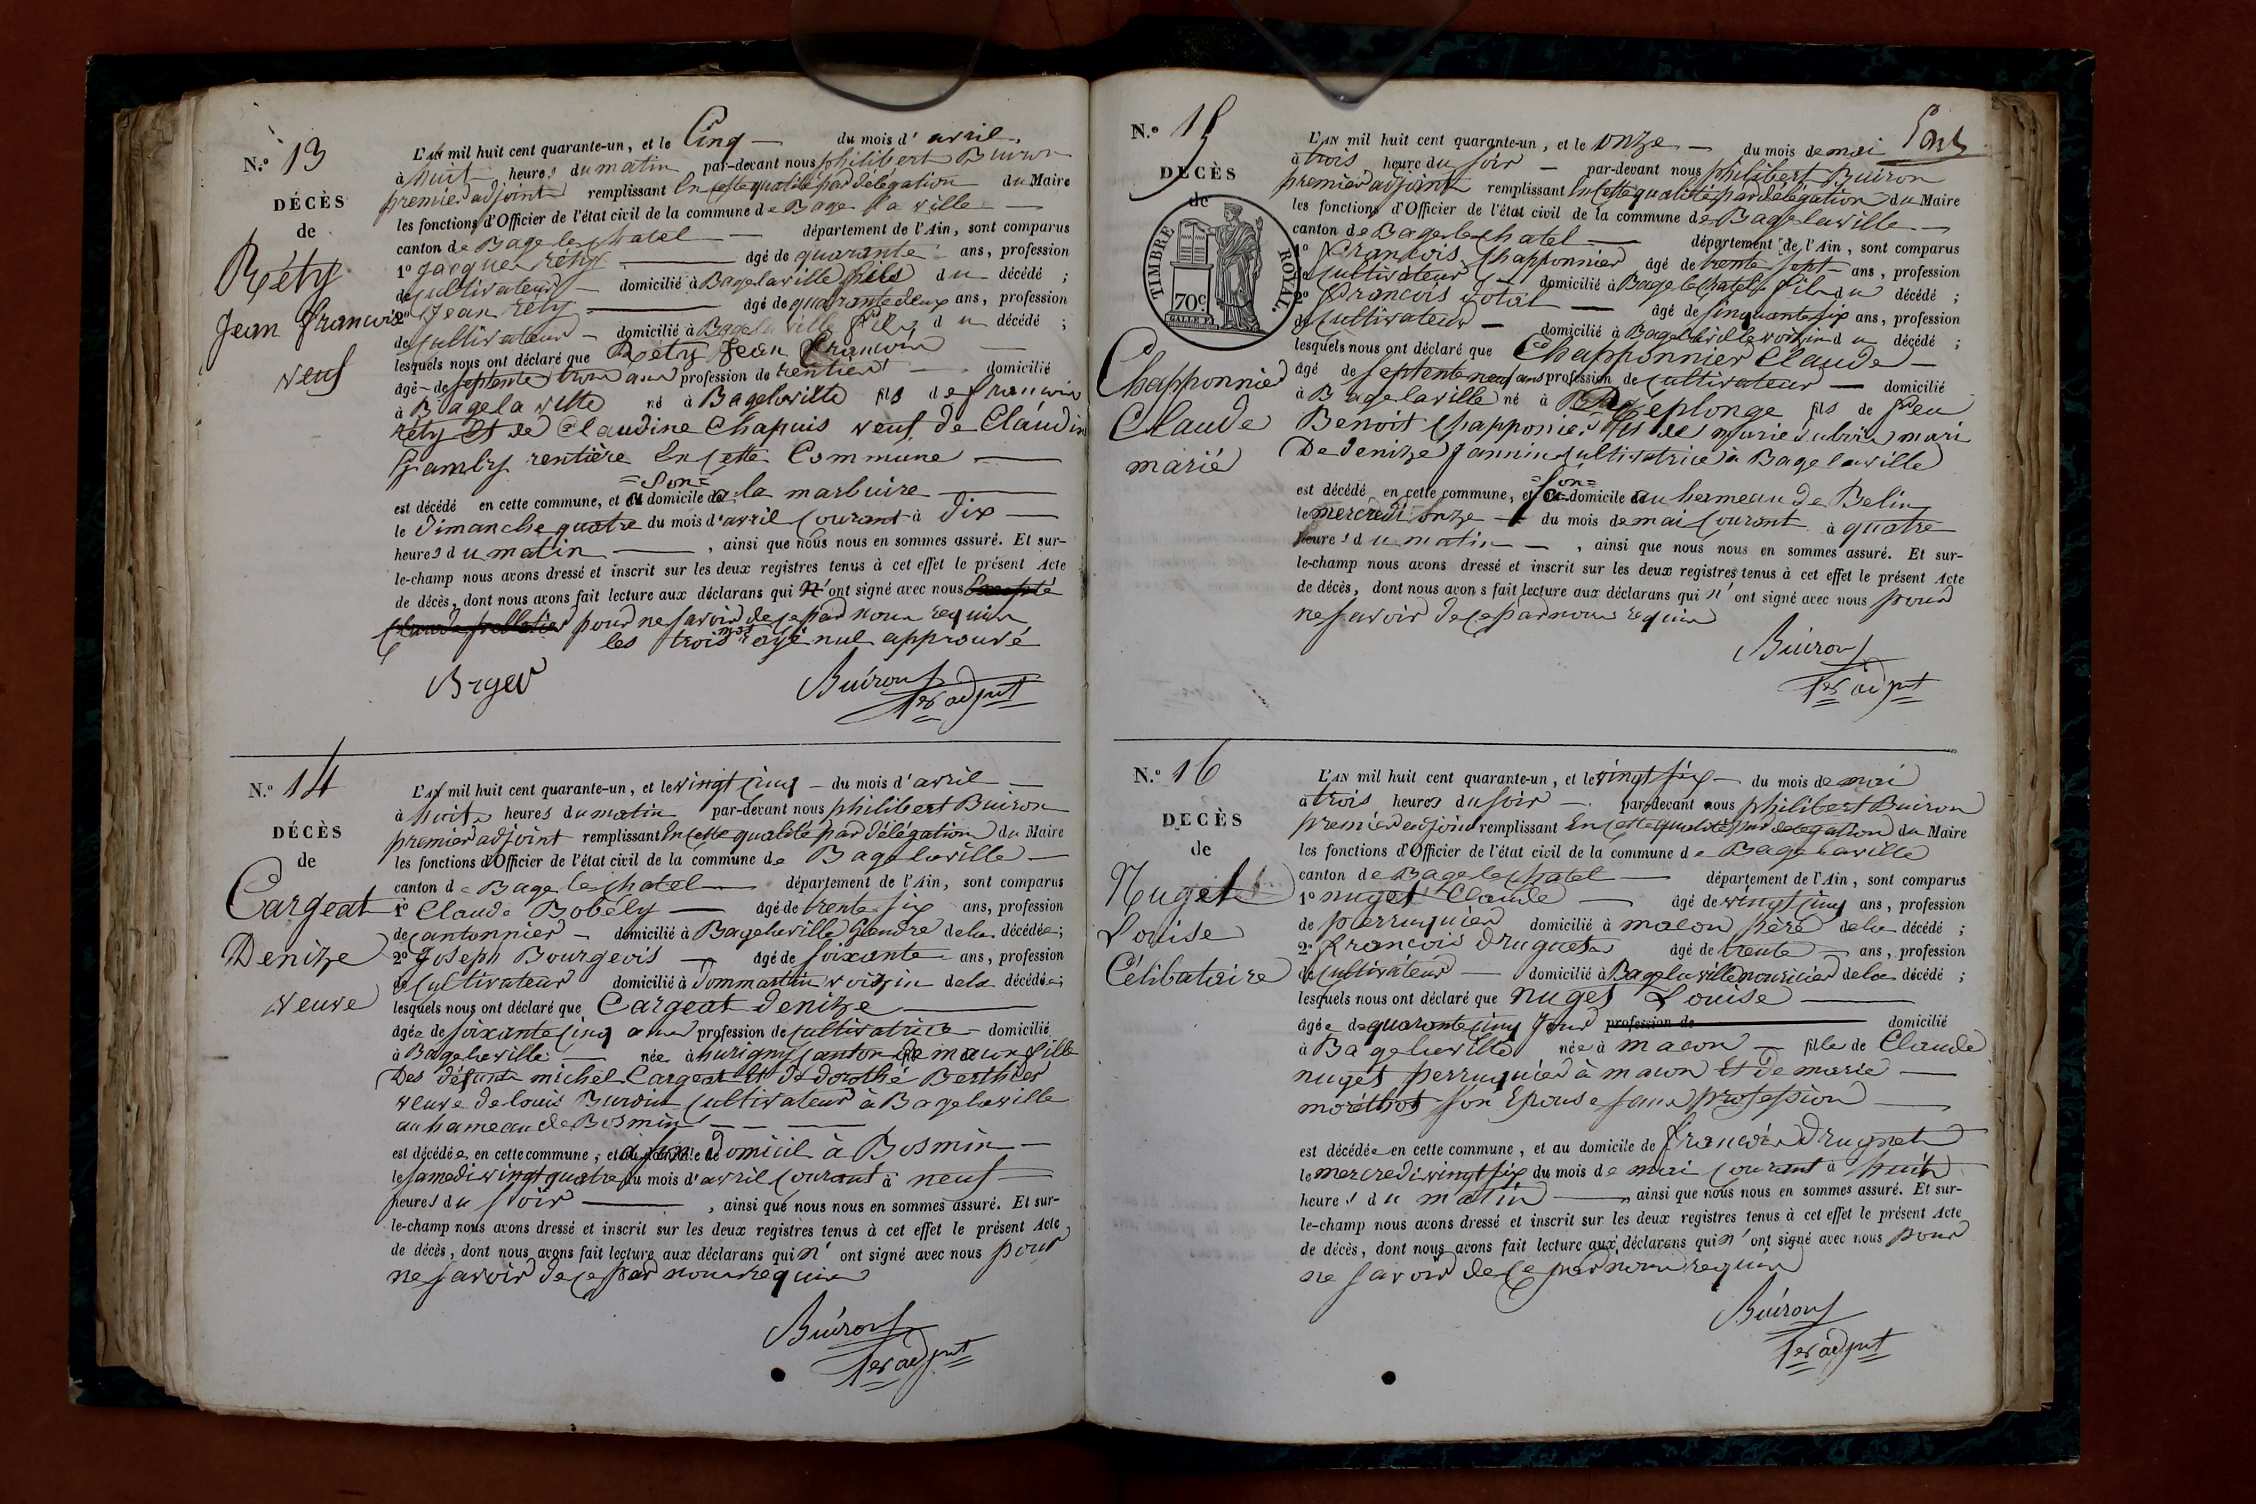 N.º 13
DÉCÈS
de
Réty
Jean francois
veuf
L'AN mil huit cent quarante-un, et le Cinq — du mois d'avril
à huit heures du matin par-devant nous philibert Buiron
premier adjoint remplissant En cette qualité par délégation du Maire
les fonctions d'Officier de l'état civil de la commune de Bage la ville —
canton de Bage le chatel — département de l'Ain, sont comparus
1º Jacques réty — âgé de quarante ans, profession
de cultivateur — domicilié à Bagelaville fils du décédé ;
2º Jean réty — âgé de quarante deux ans, profession
de cultivateur — domicilié à Bagelaville fils du décédé ;
lesquels nous ont déclaré que Réty Jean francois —
âgé de septente trois ans profession de rentier — domicilié
à Bagela ville né à Bagelaville fils de francois
réty Et de Claudine Chapuis veuf de Claudin
Gambry rentière En cette Commune —
=Son=
est décédé en cette commune, et au domicile de a la marbuire —
le dimanche quatre du mois d'avril courant à dix —
heures du matin — , ainsi que nous nous en sommes assuré. Et sur-
le-champ nous avons dressé et inscrit sur les deux registres tenus à cet effet le présent Acte
de décès, dont nous avons fait lecture aux déclarans qui N'ont signé avec nous Excepté
Claude pelletier pour ne savoir de ce par nous requis
les trois mot rayé nul approuvé
Buiron
1er adjnt
N.º 14
DÉCÈS
de
Cargeat
Denize
veuve
L'AN mil huit cent quarante-un, et le vingt cinq — du mois d'avril —
à huit heures du matin par-devant nous philibert Buiron
premier adjoint remplissant En cette qualité par délégation du Maire
les fonctions d'Officier de l'état civil de la commune de Bagelaville —
canton de Bage le chatel — département de l'Ain, sont comparus
1º Claude Bobély — âgé de trente six ans, profession
de cantonnier — domicilié à Bagelaville Gendre dela décédée ;
2º Joseph Bourgeois — âgé de soixante ans, profession
de cultivateur domicilié à dommartin voisin dela décédée ;
lesquels nous ont déclaré que Cargeat denize —
âgée de soixante cinq ans profession de cultivatrice — domicilié
à Bagelaville — née à hurigny canton de macon fille
Des défunts michel Cargeat Et de dorothé Berthier
veuve de louis Burdin cultivateur à Bagelaville
au hameau de Bosmin —
est décédée en cette commune, et à son domicil à Bosmin —
le samedi vingt quatre du mois d'avril courant à neuf —
heures du soir — , ainsi que nous nous en sommes assuré. Et sur-
le-champ nous avons dressé et inscrit sur les deux registres tenus à cet effet le présent Acte
de décès, dont nous avons fait lecture aux déclarans qui n'ont signé avec nous pour
ne savoir de ce par nous requis
Buiron
1er adjnt
N.º 15
DÉCÈS
de
TIMBRE ROYAL.
70c
Chapponnier
Claude
marié
L'AN mil huit cent quarante-un, et le onze — du mois de mai
à trois heure du soir — par-devant nous philibert Buiron
premier adjoint remplissant En cette qualité par délégation du Maire
les fonctions d'Officier de l'état civil de la commune de Bagelaville —
canton de Bage le chatel — département de l'Ain, sont comparus
1º francois Chapponnier âgé de trente sept ans, profession
de cultivateur — domicilié à Bage le chatel fils du décédé ;
2º francois dotal — âgé de cinquante six ans, profession
de cultivateur — domicilié à Bagelaville voisin du décédé ;
lesquels nous ont déclaré que Chapponnier Claude —
âgé de septente neuf ans profession de cultivateur — domicilié
à Bagelaville né à Replonge fils de feu
Benoit Chapponier Et de marie subrin mari
De denize Jannin cultivatrice à Bagelaville
=Son=
est décédé en cette commune, et au domicile de au hameau de Belin
le mercredi onze — du mois de mai courant à quatre
heures du matin — , ainsi que nous nous en sommes assuré. Et sur-
le-champ nous avons dressé et inscrit sur les deux registres tenus à cet effet le présent Acte
de décès, dont nous avons fait lecture aux déclarans qui n'ont signé avec nous pour
ne savoir de ce par nous requis
Buiron
1er adjnt
N.º 16
DÉCÈS
de
Nuget
Louise
Célibataire
L'AN mil huit cent quarante-un, et le vingt six — du mois de mai
à trois heures du soir — par-devant nous philibert Buiron
premier adjoint remplissant En cette qualité par délégation du Maire
les fonctions d'Officier de l'état civil de la commune de Bagelaville
canton de Bage le chatel — département de l'Ain, sont comparus
1º nuget Claude — âgé de vingt cinq ans, profession
de perruquier domicilié à macon père dela décédé ;
2º francois druguet âgé de trente — ans, profession
de cultivateur — domicilié à Bagelaville nouricier dela décédé ;
lesquels nous ont déclaré que nuget Louise —
âgée de quarante cinq jours profession de — domicilié
à Bagelaville née à macon — fille de Claude
nuget perruquier à macon Et de marie —
moréthot son Epouse sans profession —
est décédée en cette commune, et au domicile de francois druguet
le mercredi vingt six du mois de mai courant à huit
heures du matin — , ainsi que nous nous en sommes assuré. Et sur-
le-champ nous avons dressé et inscrit sur les deux registres tenus à cet effet le présent Acte
de décès, dont nous avons fait lecture aux déclarans qui n'ont signé avec nous pour
ne savoir de ce par nous requis
Buiron
1er adjnt